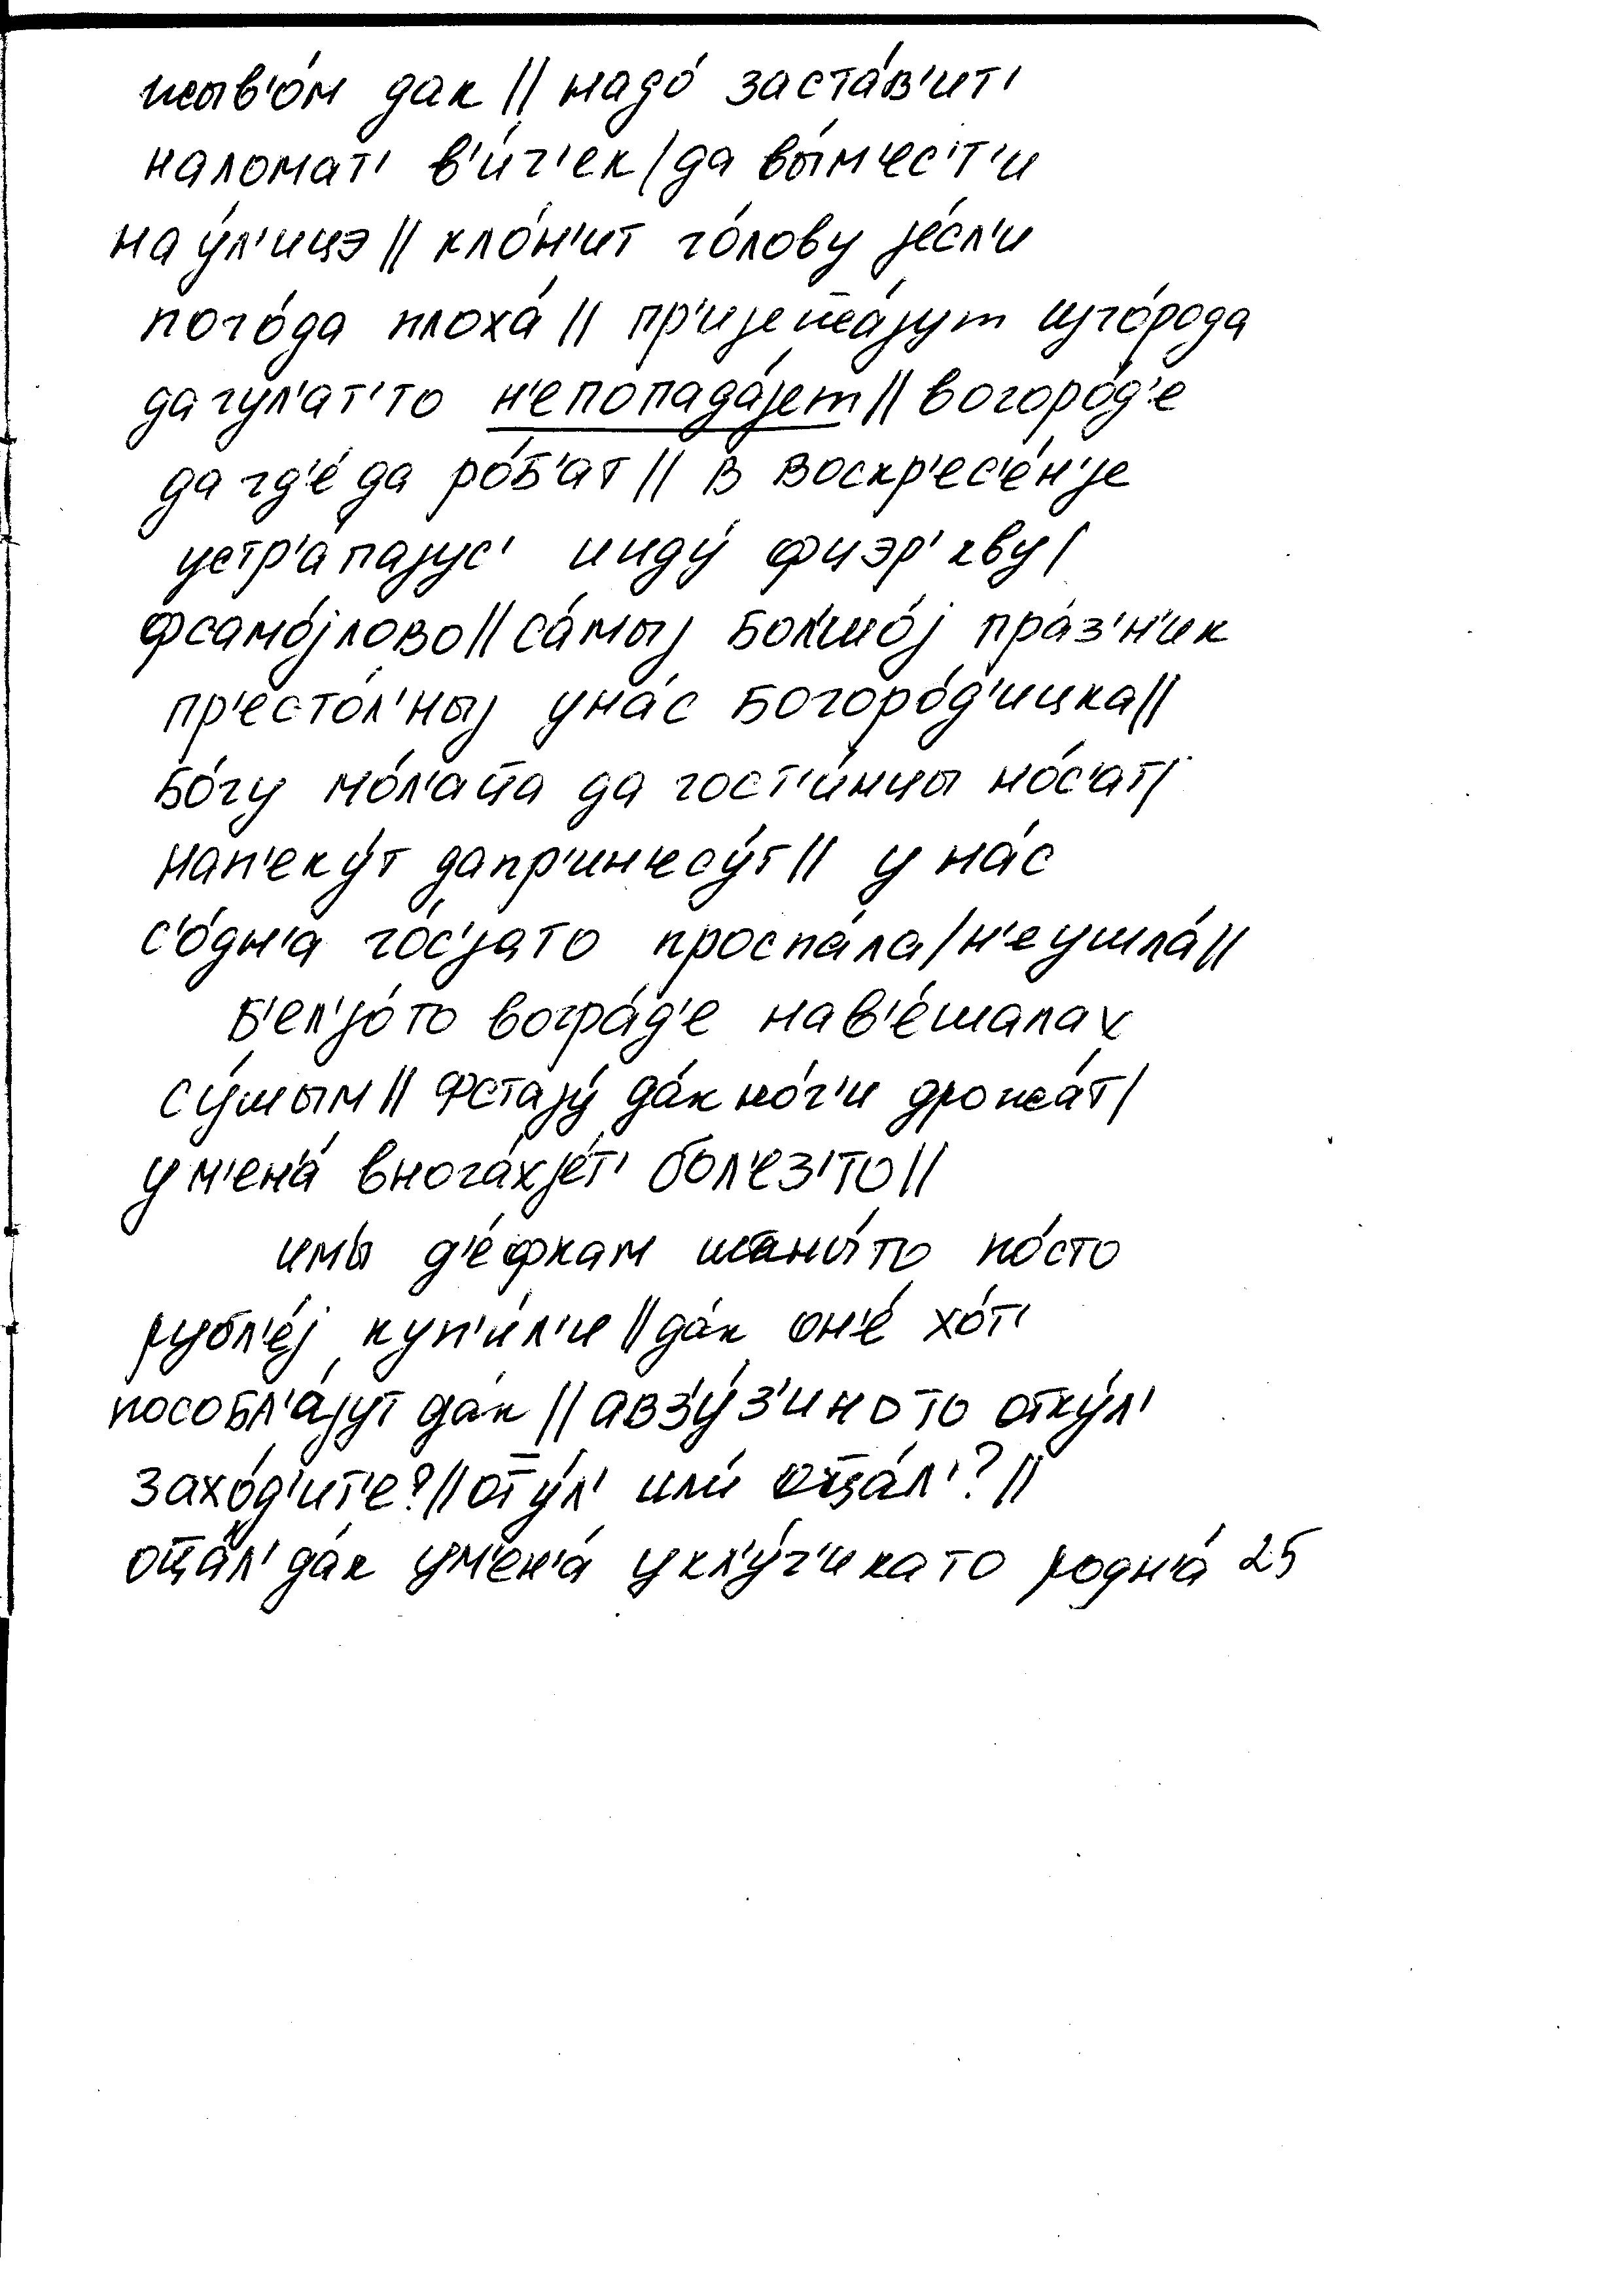 жыв'о́м дак || надо́ заста́в'ит'
наломат' в'и́ч'ек / да вы́м'ес'т'и
на у́л'ицэ || кло́н'ит го́лову jе́сл'и
пого́да плоха́ || пр'иjежа́jут изго́рода
да гул'ат'то н'епопада́jет || вогоро́д'е
да гд'е́ да ро́б'ат || в воскр'ес'е́н'jе
устр'а́паjус' ииду́ фцэр'кву /
фсамо́jлово || са́мыj бол'шо́j пра́з'н'ик
пр'есто́л'ныj уна́с Богоро́д'ицка ||
бо́гу мо́л'ац̄а да гост'и́нцы но́с'ат /
нап'еку́т дапр'ин'есу́т || у на́с
с'о́дн'а го́с'jато проспа́ла / н'еушла́ ||
б'ел'jо́то вогра́д'е нав'е́шалах
су́шым || фстаjу́ да́к но́г'и дрожа́т /
ум'ен'а́ внога́хjе́т' бол'ез'то ||
имы́ д'е́фкам штаны́то по́сто
рубл'е́j куп'и́л'и || да́к он'е́ хо́т'
пособл'а́jут да́к || авз'у́з'иното отку́л'
захо́д'ит'е? || от̄у́л' или́ оц̄а́л'? ||
оц̄а́л' да́к ум'ен'а́ укл'у́ч'икато родн'а́ 25